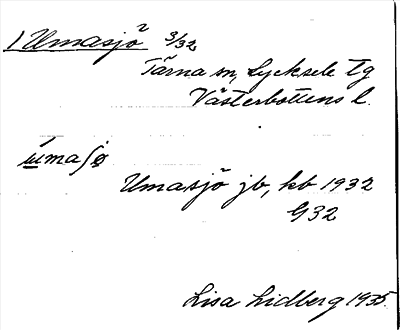 1 Umasjö 2 3/32
Tärna sn, Lycksele tg
Västerbottens l.
u̱maʃø
Umasjö jb, kb 1932
G32
Lisa Lidberg 1935.